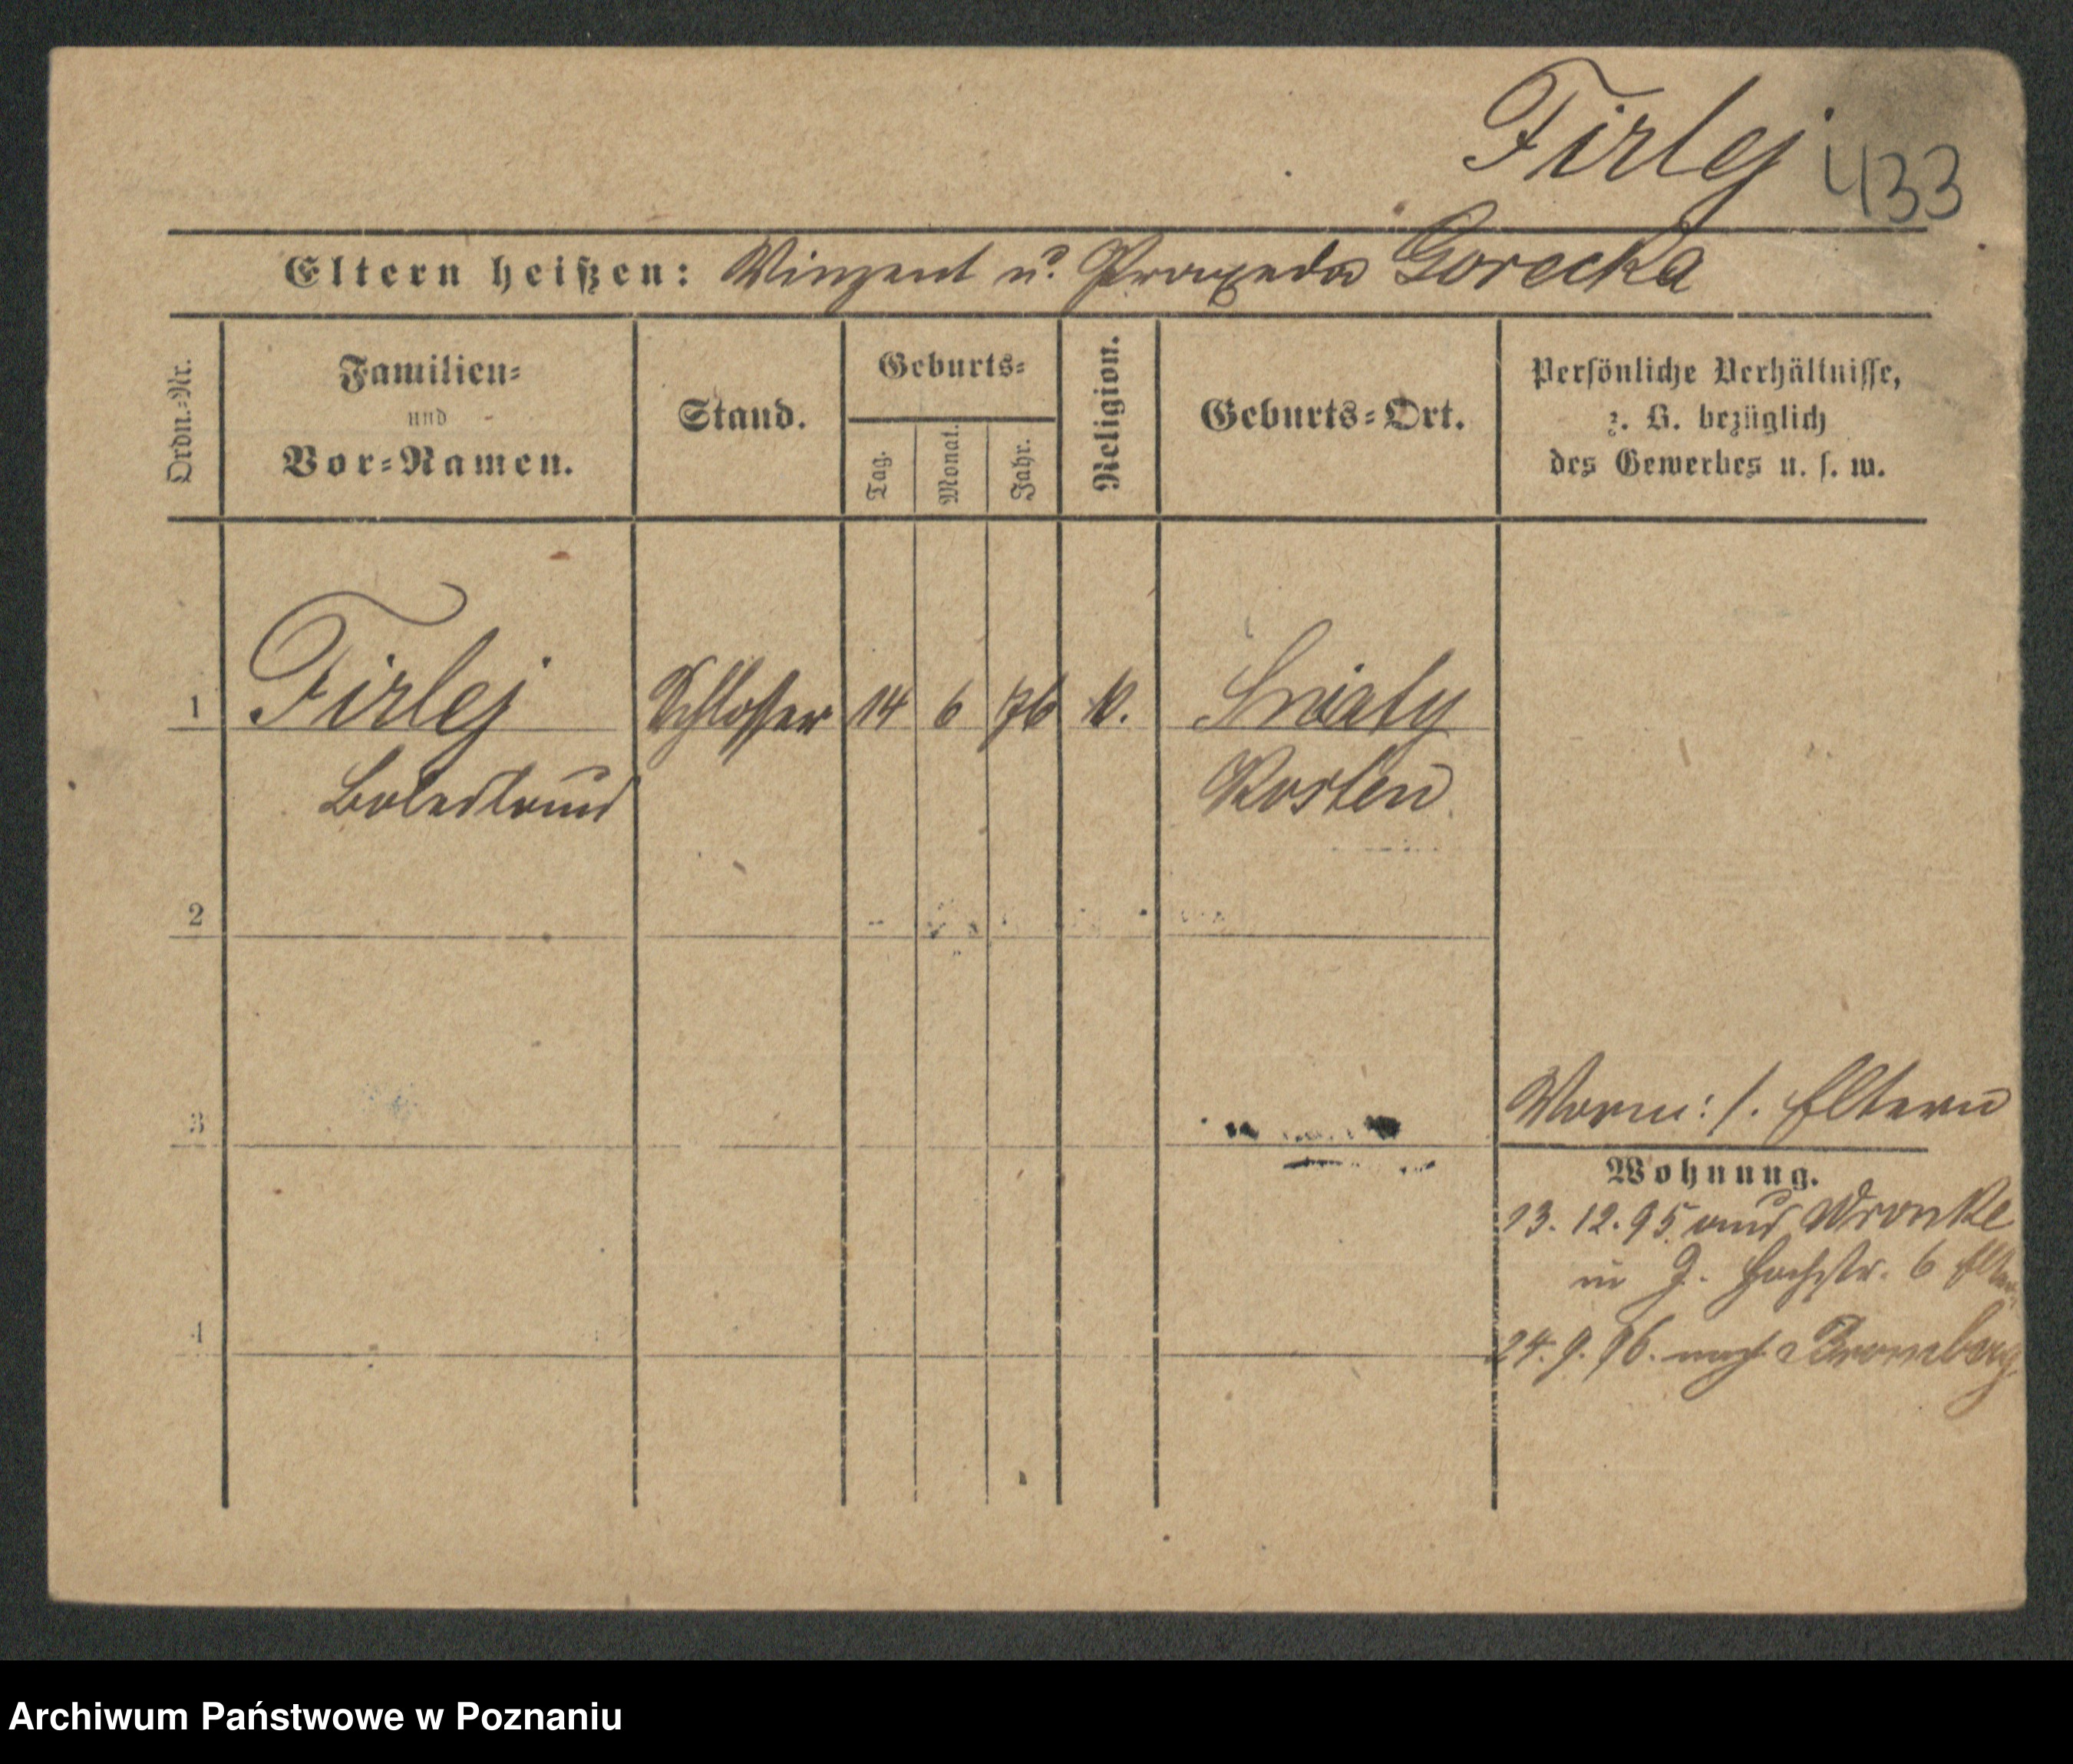 Firlej 433
Eltern heißen: Vinzent u. Praxeda Gorecka
Ordn.-Nr.
Familien-
und
Vor-Namen.
Stand.
Geburts-
Tag.
Monat.
Jahr.
Religion.
Geburts-Ort.
Persönliche Verhältnisse,
z. B. bezüglich
des Gewerbes u. s. w.
1 Firlej Schlosser 14 6 76 k.
Boleslaus Kosten
2
3
Vorm: s. Eltern
Wohnung.
13. 12. 95 aus Wronke
in J. Hochstr. 6
4
24. 9. 96. nach Bromberg
Archiwum Państwowe w Poznaniu